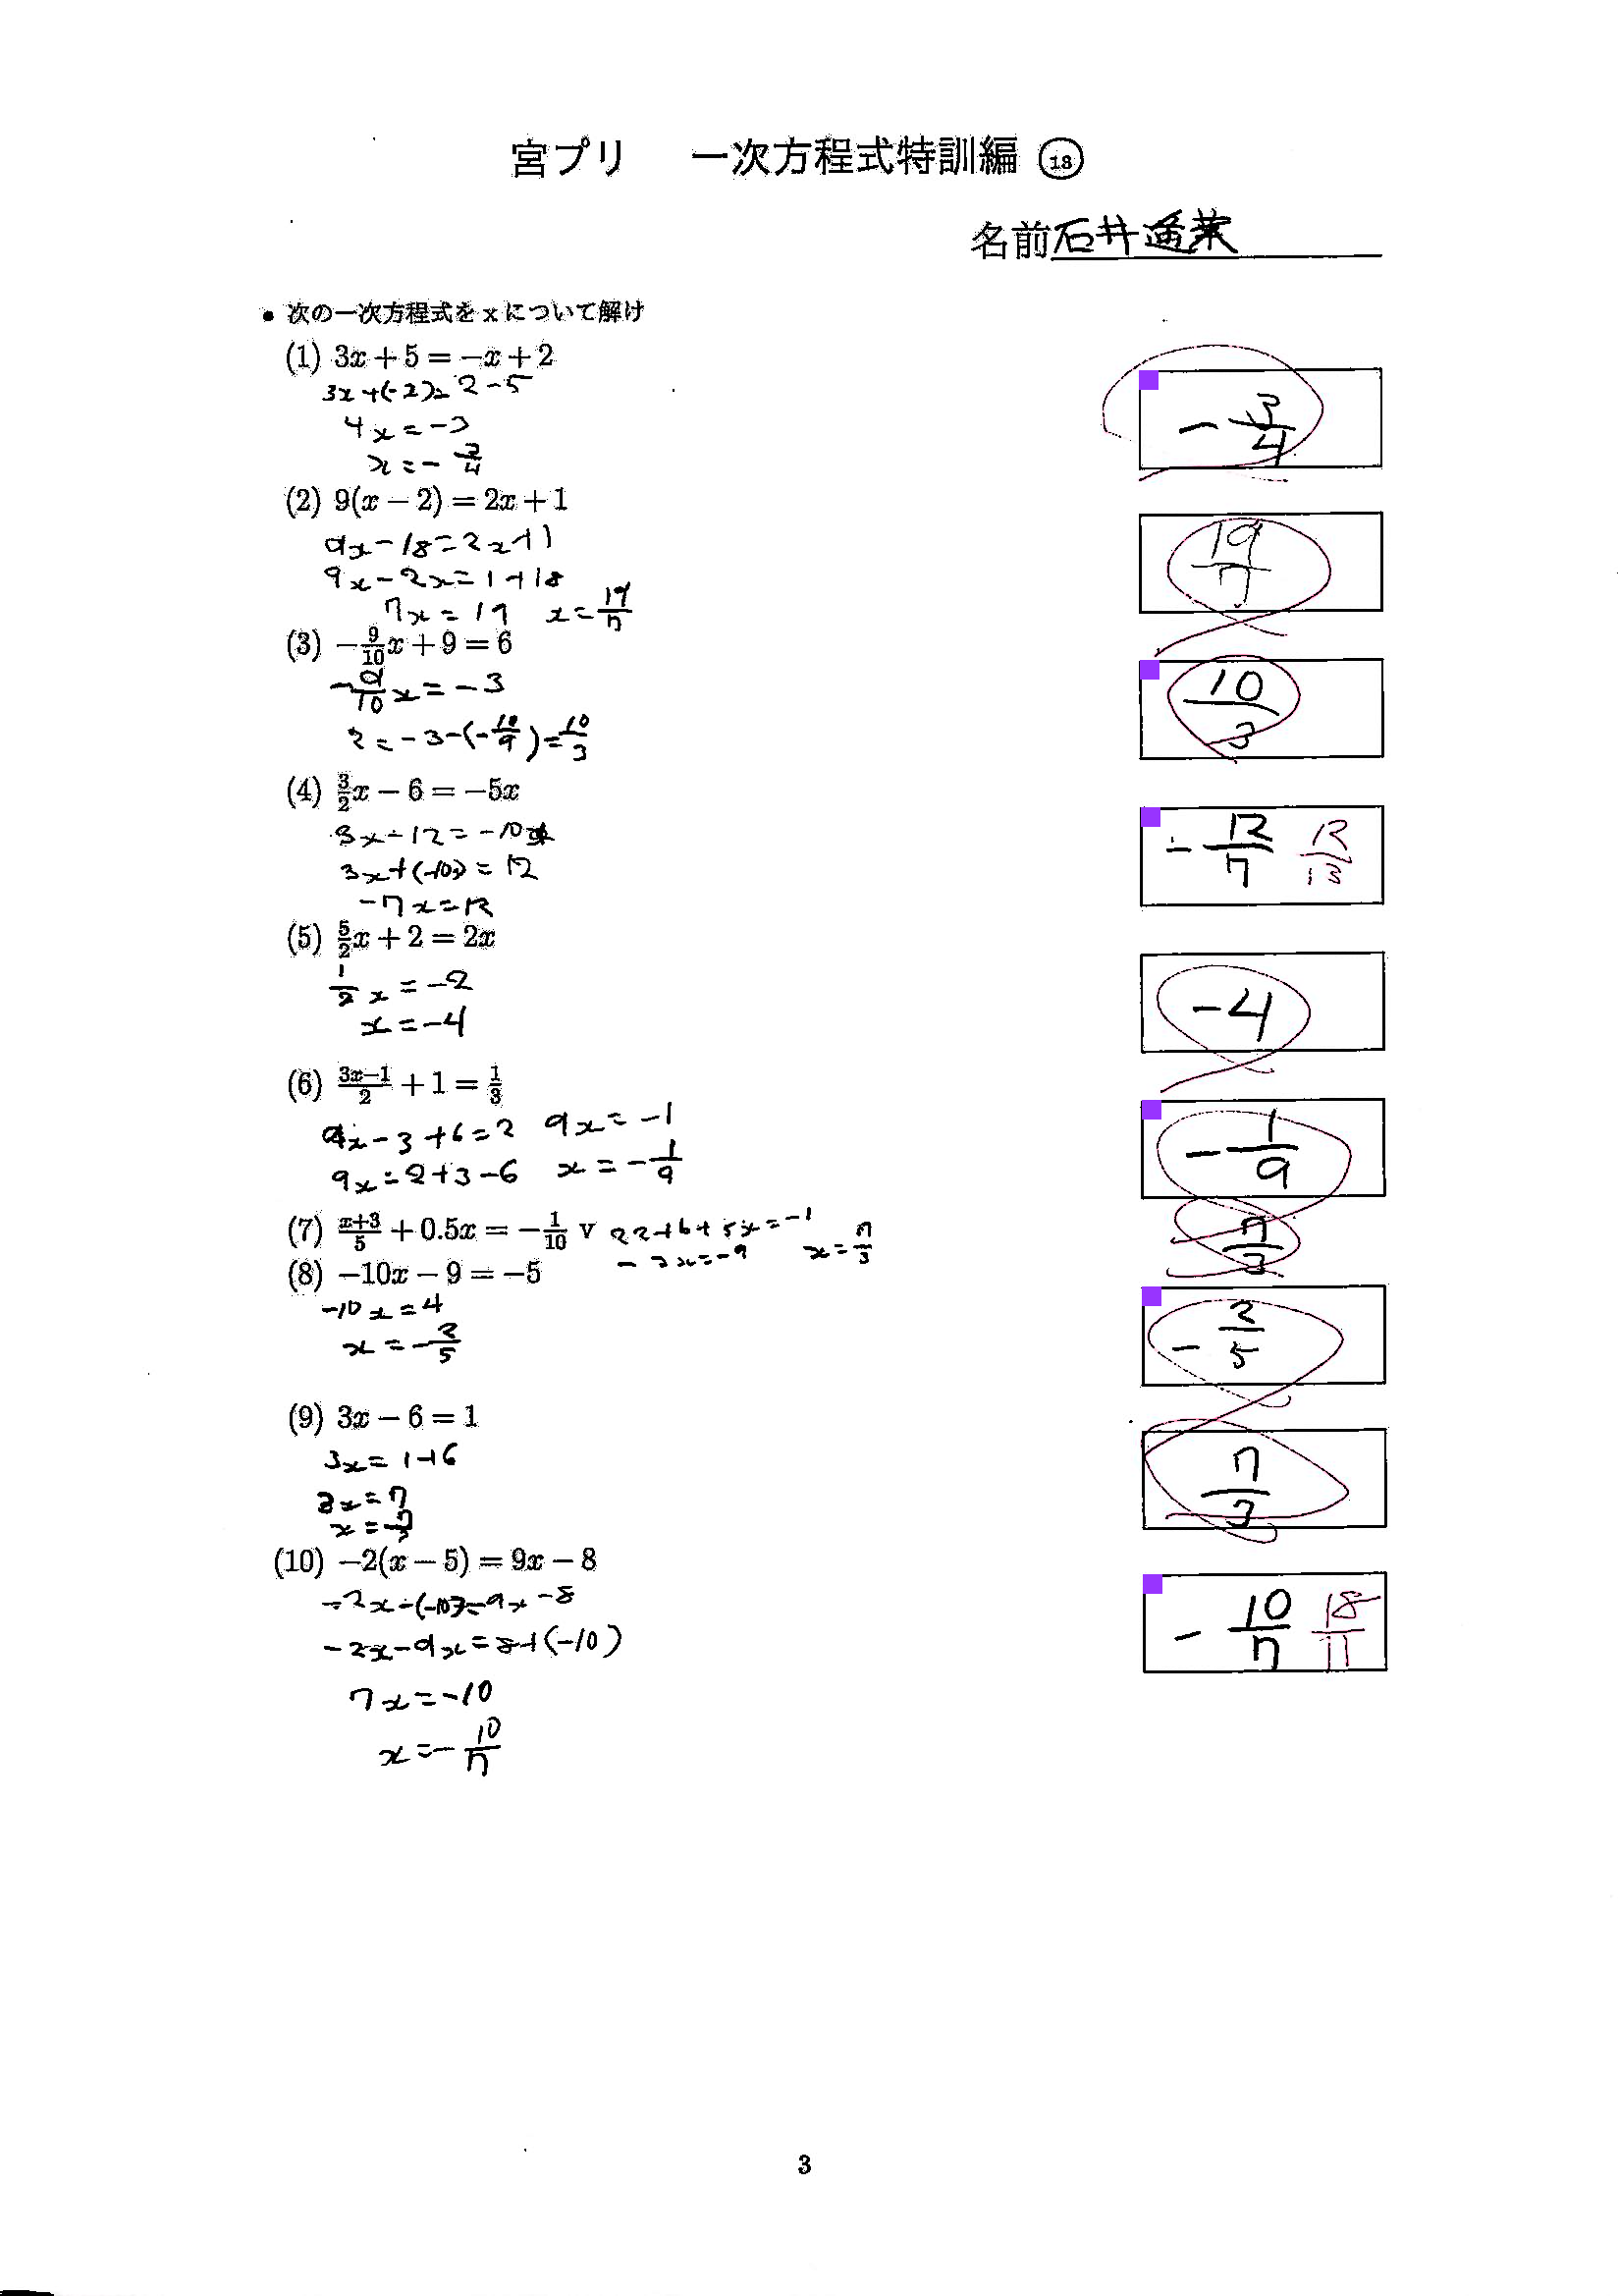 宮プリ 一次方程式特訓編 ⑱
名前 石井遥葉
• 次の一次方程式を x について解け
(1) 3x + 5 = −x + 2
3x+(-2)=2-5
4x=-3
x=-3/4
-3/4
(2) 9(x − 2) = 2x + 1
9x-18=2x+1
9x-2x=1+18
7x=19 x=19/7
19/7
(3) −9/10x + 9 = 6
-9/10x=-3
x=-3-(-10/9)=10/3
10/3
(4) 3/2x − 6 = −5x
3x-12=-10x
3x+(-10x)=12
-7x=12
-12/7 12/13
(5) 5/2x + 2 = 2x
1/2x=-2
x=-4
-4
(6) (3x−1)/2 + 1 = 1/3
9x-3+6=2 9x=-1
9x=2+3-6 x=-1/9
-1/9
(7) (x+3)/5 + 0.5x = −1/10 v 2x+6+5x=-1
x=7/3
7/3
(8) −10x − 9 = −5
-10x=4
x=-2/5
-2/5
(9) 3x − 6 = 1
3x=1+6
3x=7
x=7/3
7/3
(10) −2(x − 5) = 9x − 8
-2x-(-10)=9x-8
-2x-9x=8+(-10)
7x=-10
x=-10/7
-10/7 18/11
3